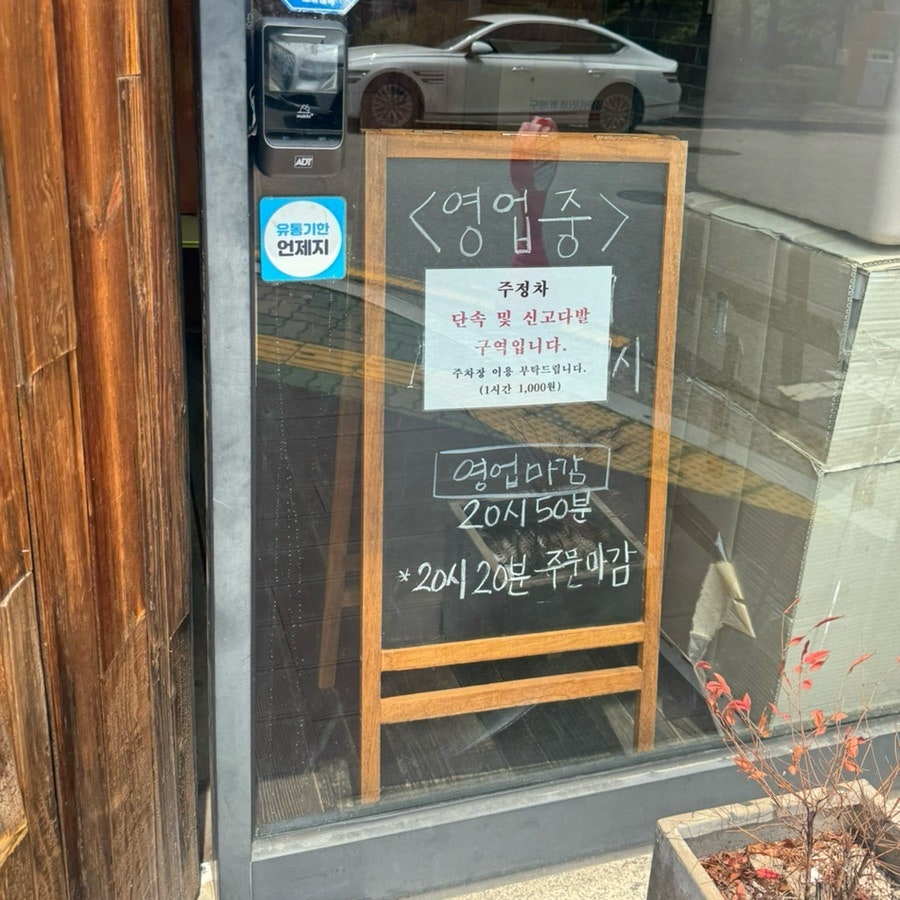 mobile
ADT
유통기한
언제지
<영업중>
주정차
단속 및 신고다발
구역입니다.
주차장 이용 부탁드립니다.
(1시간 1,000원)
시
영업마감
20시 50분
*20시 20분 주문마감